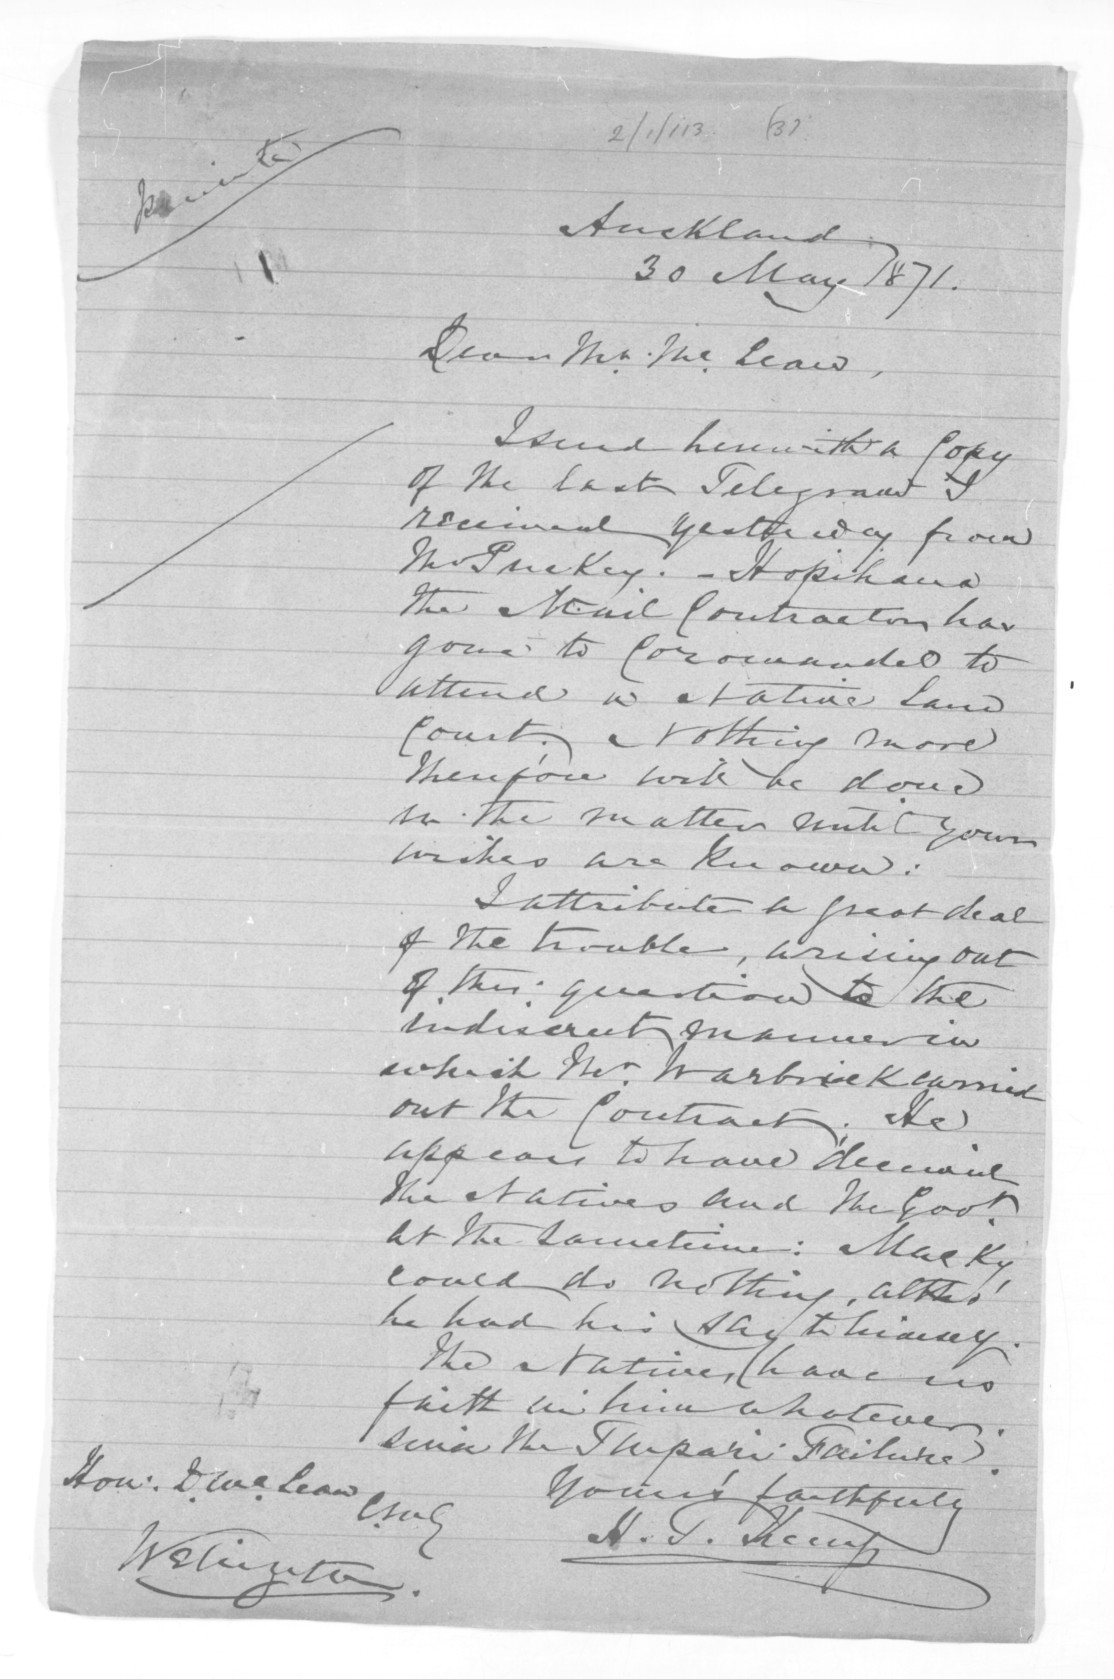 2/1/113 (37
Private
Auckland
30 May 1871.
Dear Mr. McLean,
I send herewith a Copy
of the last Telegram I
received yesterday from
Mr Puckey. - Hopihana
the Mail Contractor has
gone to Coromandel to
attend a Native Land
Court. Nothing more
therefore will be done
in the matter until your
wishes are known:
I attribute a great deal
of the trouble, arising out
of this question to the
indiscreet manner in
which Mr. Warbrick carried
out the Contract. He
appears to have deceived
the Natives and the Govt.
at the sametime: Macky
could do nothing, altho'
he had his say to himself.
The Natives have no
faith in him whatever.
since the Tupari Failure.
Yours faithfully
H. T. Kemp
Hon: D. McLean
C.M.G
Wellington.